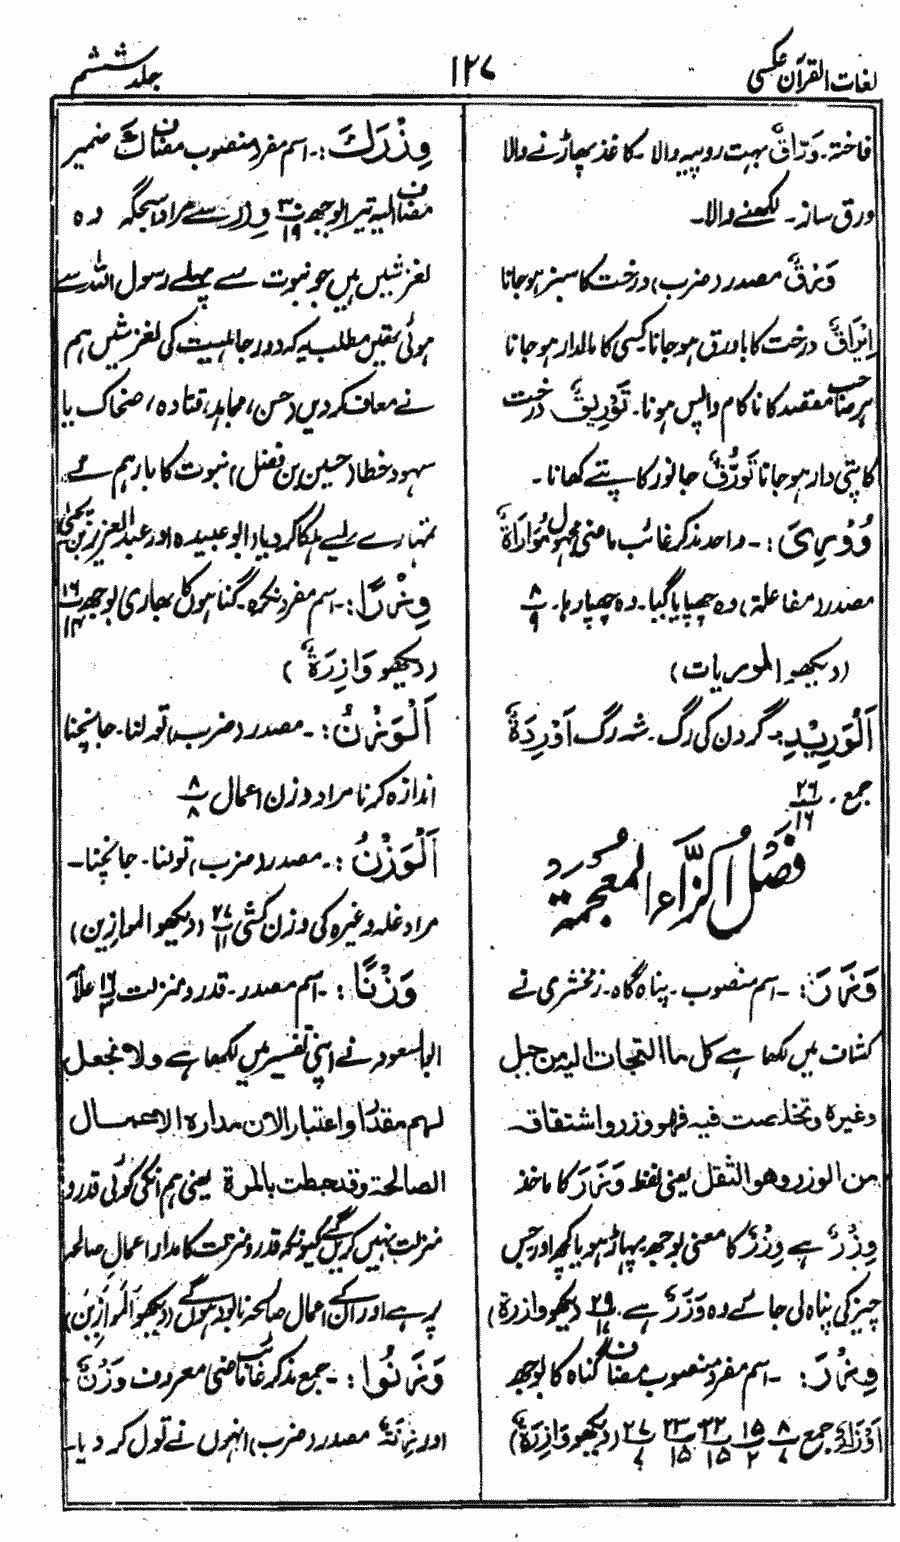 لغات القرآن عکسی
۱۲۷
جلد ششم
فاختہ۔ وَرَّاقٌ بہت روپیہ والا۔ کاغذ پھاڑنے والا
ورق ساز۔ لکھنے والا۔
وَرْقٌ مصدر (ضرب) درخت کا سبز ہوجانا
اِیْرَاقٌ درخت کا باورق ہوجانا کسی کا مالدار ہوجانا
ہر صاحب مقصد کا ناکام واپس ہونا۔ تَوْرِیْقٌ درخت
کا پتی دار ہوجانا تَوَرُّقٌ جانور کا پتے کھانا۔
وُوْرِیَ :۔ واحد مذکر غائب ماضی مجہول مُوَارَاۃٌ
مصدر (مفاعلۃ) وہ چھپایا گیا۔ وہ چھپا رہا۔ ۸/۹
(دیکھو الموریات)
اَلْوَرِیْدِ:۔ گردن کی رگ۔ شہ رگ اَوْرِدَۃٌ
جمع ۔ ۲۶/۱۶
فصل الزاء المعجمۃ
وَزَرَ :۔ اسم منصوب۔ پناہ گاہ۔ زمخشری نے
کشاف میں لکھا ہے کل ما التجات الیہ من جبل
وغیرہ وتخلصت فیہ فہو وزر واشتقاقہ
من الوزر وھو الثقل یعنی لفظ وَزَرَ کا ماخذ
وِزْرٌ ہے وِزْرٌ کا معنی بوجھ پہاڑ ہو یا کچھ اور جس
چیز کی پناہ لی جائے وہ وَزَرٌ ہے۔ ۲۹/۱۷ (دیکھو وازرۃ)
وِزْرَ :۔ اسم مفرد منصوب مضاف گناہ کا بوجھ
اَوْزَارٌ جمع ۸/۷ ۱۵/۲ ۲۲/۱۵ ۲۳/۱۵ ۲۷/۷ (دیکھو وَازِرَۃٌ)
وِزْرَكَ :۔ اسم مفرد منصوب مضاف كَ ضمیر
مضاف الیہ تیرا بوجھ ۳۰/۱۹ وِزْر سے مراد اسجگہ وہ
لغزشیں ہیں جو نبوت سے پہلے رسول اللہ سے
ہوئی تھیں مطلب یہ کہ دور جاہلیت کی لغزشیں ہم
نے معاف کر دیں (حسن، مجاہد، قتادہ، ضحاک یا
سہو و خطا (حسین بن فضل) نبوت کا بار ہم نے
تمہارے لیے ہلکا کر دیا (ابو عبیدہ اور عبد العزیز بن یحیٰی
وِزْرًا :۔ اسم مفرد نکرہ۔ گناہوں کا بھاری بوجھ ۱۶/۱۴
(دیکھو وَازِرَۃٌ)
اَلْوَزْنُ :۔ مصدر (ضرب) تولنا۔ جانچنا
اندازہ کرنا مراد وزن اعمال ۸/۸
اَلْوَزْنَ :۔ مصدر (ضرب) تولنا۔ جانچنا۔
مراد غلہ وغیرہ کی وزن کشی ۲۷/۱۱ (دیکھو الموازین)
وَزْنًا :۔ اسم مصدر۔ قدر و منزلت ۱۶/۳ علاّمہ
ابو السعود نے اپنی تفسیر میں لکھا ہے ولا نجعل
لہم مقدارا واعتبارا لان مدارہ الاعمال
الصالحۃ وقد حبطت بالمرۃ یعنی ہم انکی کوئی قدر و
منزلت نہیں کریں گے کیونکہ قدر و منزلت کا مدار اعمالِ صالحہ
پر ہے اور ان کے اعمال صالحہ نابود ہوں گے (دیکھو اَلْمَوَازِیْنَ)
وَزَنُوا :۔ جمع مذکر غائب ماضی معروف وَزْنٌ
اور زِنَۃٌ مصدر (ضرب) انہوں نے تول کر دیا۔